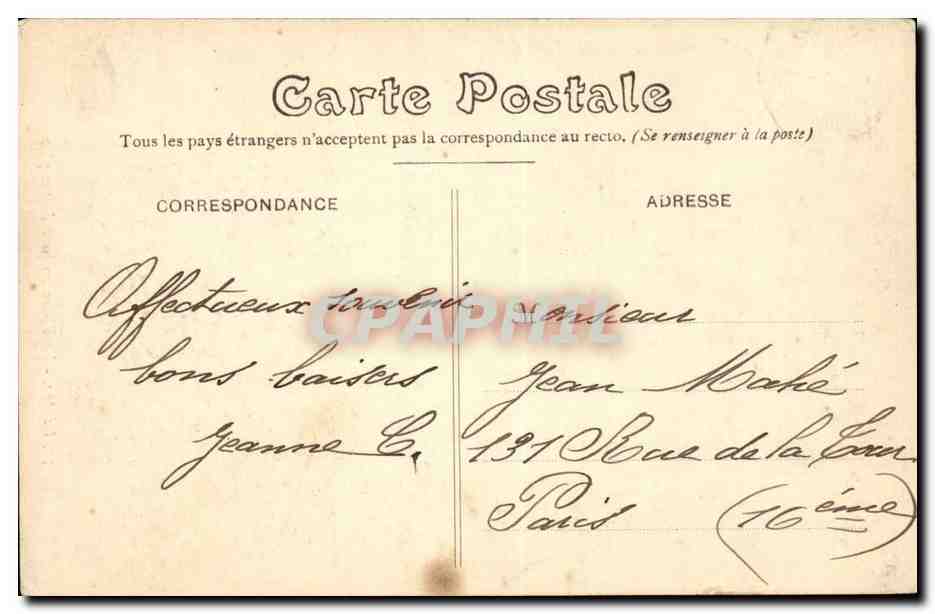 Carte Postale
Tous les pays étrangers n'acceptent pas la correspondance au recto. (Se renseigner à la poste)
CORRESPONDANCE
Affectueux souvenir
bons baisers
Jeanne C.
ADRESSE
Monsieur
Jean Mahé
131 Rue de la Tour
Paris (16ème)
CPAPHIL